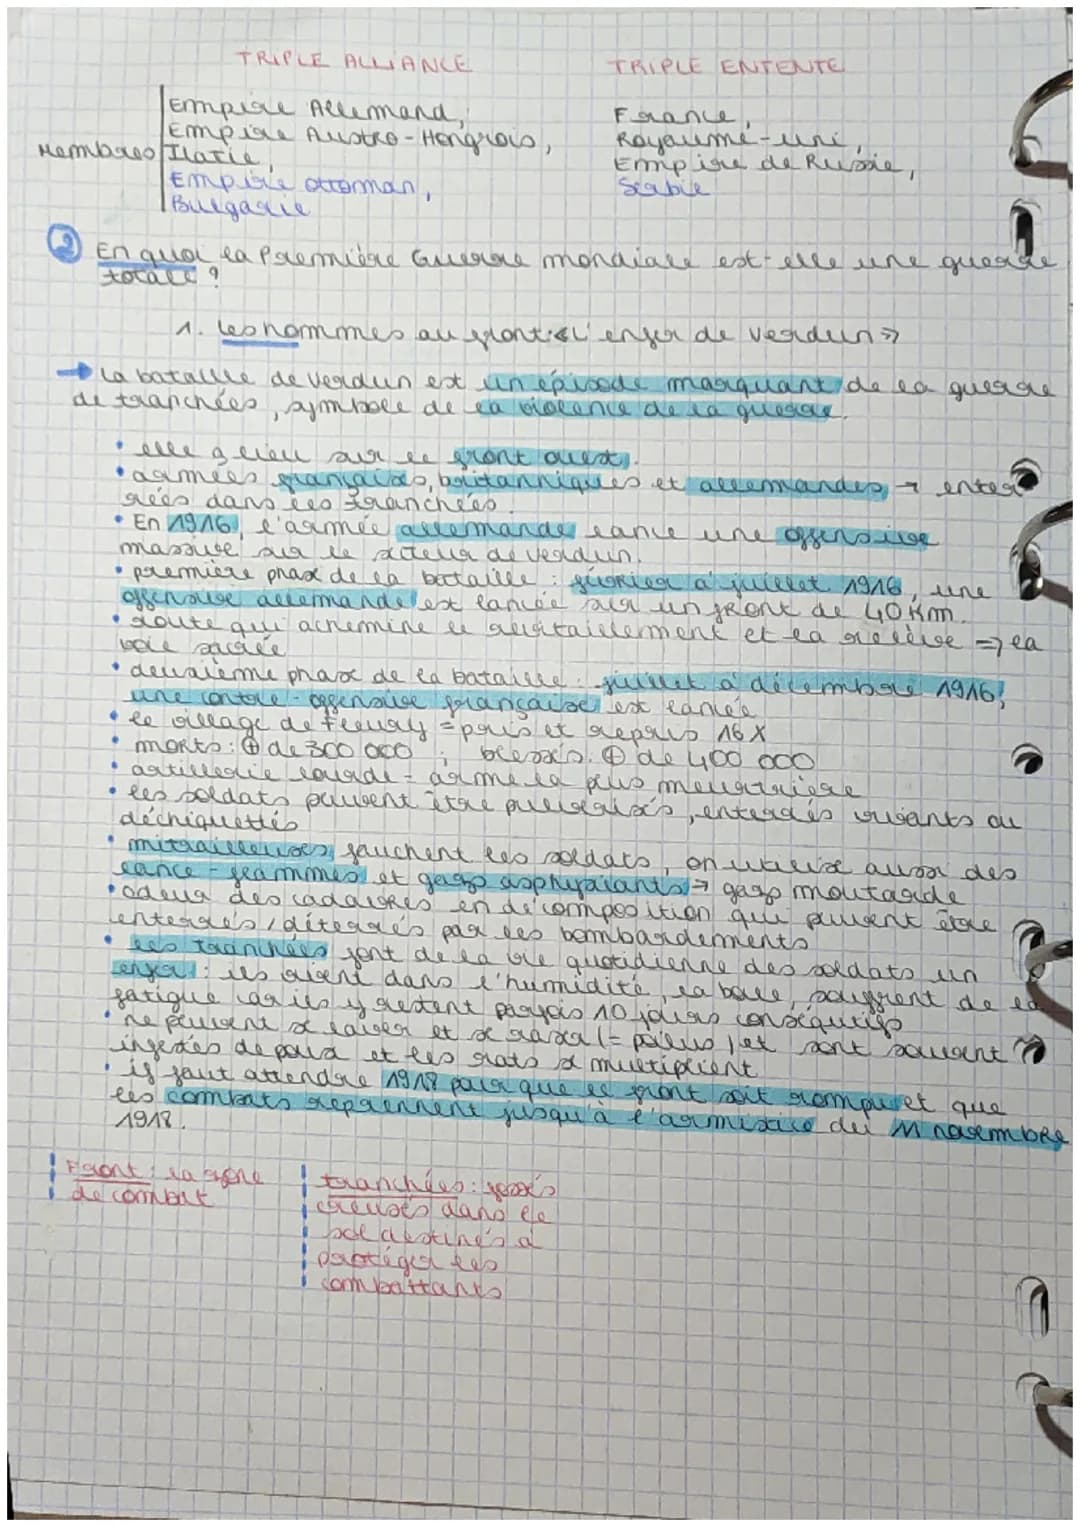 TRIPLE ALLIANCE TRIPLE ENTENTE
Empire Allemand, France,
Empire Austro-Hongrois, Royaume-uni,
Membres Italie, Empire de Russie,
Empire ottoman, Serbie
Bulgarie
2 En quoi la Première Guerre mondiale est-elle une guerre
totale ?
1. les hommes au front: « l'enfer de Verdun »
→ La bataille de Verdun est un épisode marquant de la guerre
de tranchées, symbole de la violence de la guerre.
• elle a lieu sur le front ouest.
• armées françaises, britanniques et allemandes → enter
rées dans les tranchées.
• En 1916, l'armée allemande lance une offensive
massive sur le secteur de Verdun.
• première phase de la bataille : février à juillet 1916, une
offensive allemande est lancée sur un front de 40 Km.
• route qui achemine le ravitaillement et la relève => la
voie sacrée
• deuxième phase de la bataille : juillet à décembre 1916,
une contre-offensive française est lancée
• le village de Fleury = pris et repris 16 X
• morts : ⊕ de 300 000 ; blessés : ⊕ de 400 000
• artillerie lourde = arme la plus meurtrière
• les soldats peuvent être pulvérisés, enterrés vivants ou
déchiquettés
• mitrailleuses fauchent les soldats, on utilise aussi des
lance-flammes et gazs asphyxiants → gazs moutarde
• odeur des cadavres en décomposition qui peuvent être
enterrés / déterrés par les bombardements
• les tranchées font de la vie quotidienne des soldats un
enfer : ils vivent dans l'humidité, la boue, souffrent de la
fatigue car ils y restent parfois 10 jours consécutifs
• ne peuvent se laver et se raser (= poilus) et sont souvent
infestés de poux et les rats se multiplient
• il faut attendre 1918 pour que le front soit rompu et que
les combats reprennent jusqu'à l'armistice du 11 novembre
1918.
Front : la zone tranchées : fossés
de combat creusés dans le
sol destinés à
protéger les
combattants